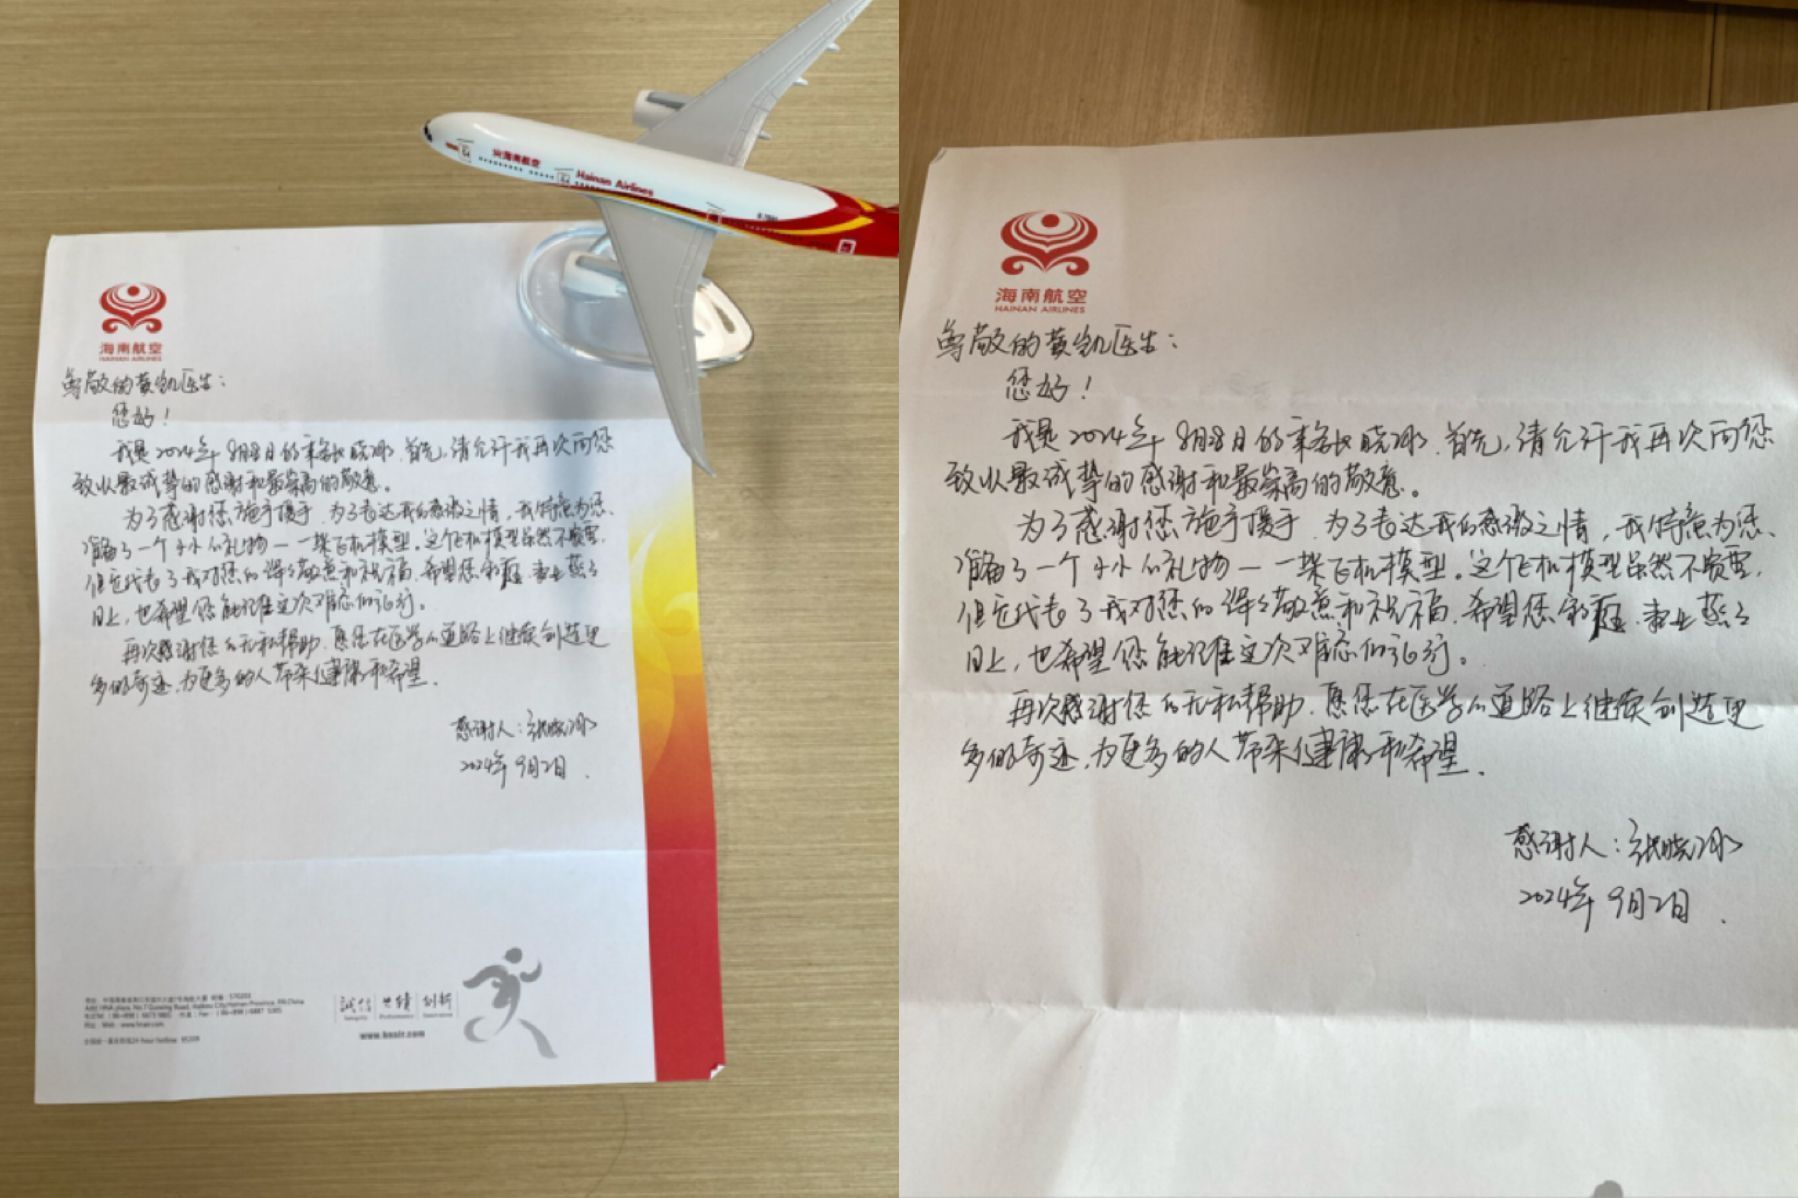 海南航空
Hainan Airlines
海南航空
HAINAN AIRLINES
尊敬的黄凯医生：
您好！
我是2024年8月8日的乘务长晓冰.首先,请允许我再次向您
致以最诚挚的感谢和最崇高的敬意。
为了感谢您施手援手.为了表达我的感激之情，我特意为您
准备了一个小小的礼物—一架飞机模型。这个飞机模型虽然不贵重,
但它代表了我对您的深深敬意和祝福.希望您家庭.事业蒸蒸
日上，也希望您能记住这次难忘的飞行。
再次感谢您的无私帮助.愿您在医学的道路上继续创造更
多的奇迹.为更多的人带来健康和希望.
感谢人：张晓冰
2024年9月2日.
诚信 业绩 创新
Integrity Performance Innovation
www.hnair.com
海南航空
HAINAN AIRLINES
尊敬的黄凯医生：
您好！
我是2024年8月8日的乘务长晓冰.首先,请允许我再次向您
致以最诚挚的感谢和最崇高的敬意。
为了感谢您施手援手.为了表达我的感激之情，我特意为您
准备了一个小小的礼物—一架飞机模型。这个飞机模型虽然不贵重,
但它代表了我对您的深深敬意和祝福.希望您家庭.事业蒸蒸
日上，也希望您能记住这次难忘的飞行。
再次感谢您的无私帮助.愿您在医学的道路上继续创造更
多的奇迹.为更多的人带来健康和希望.
感谢人：张晓冰
2024年9月2日.